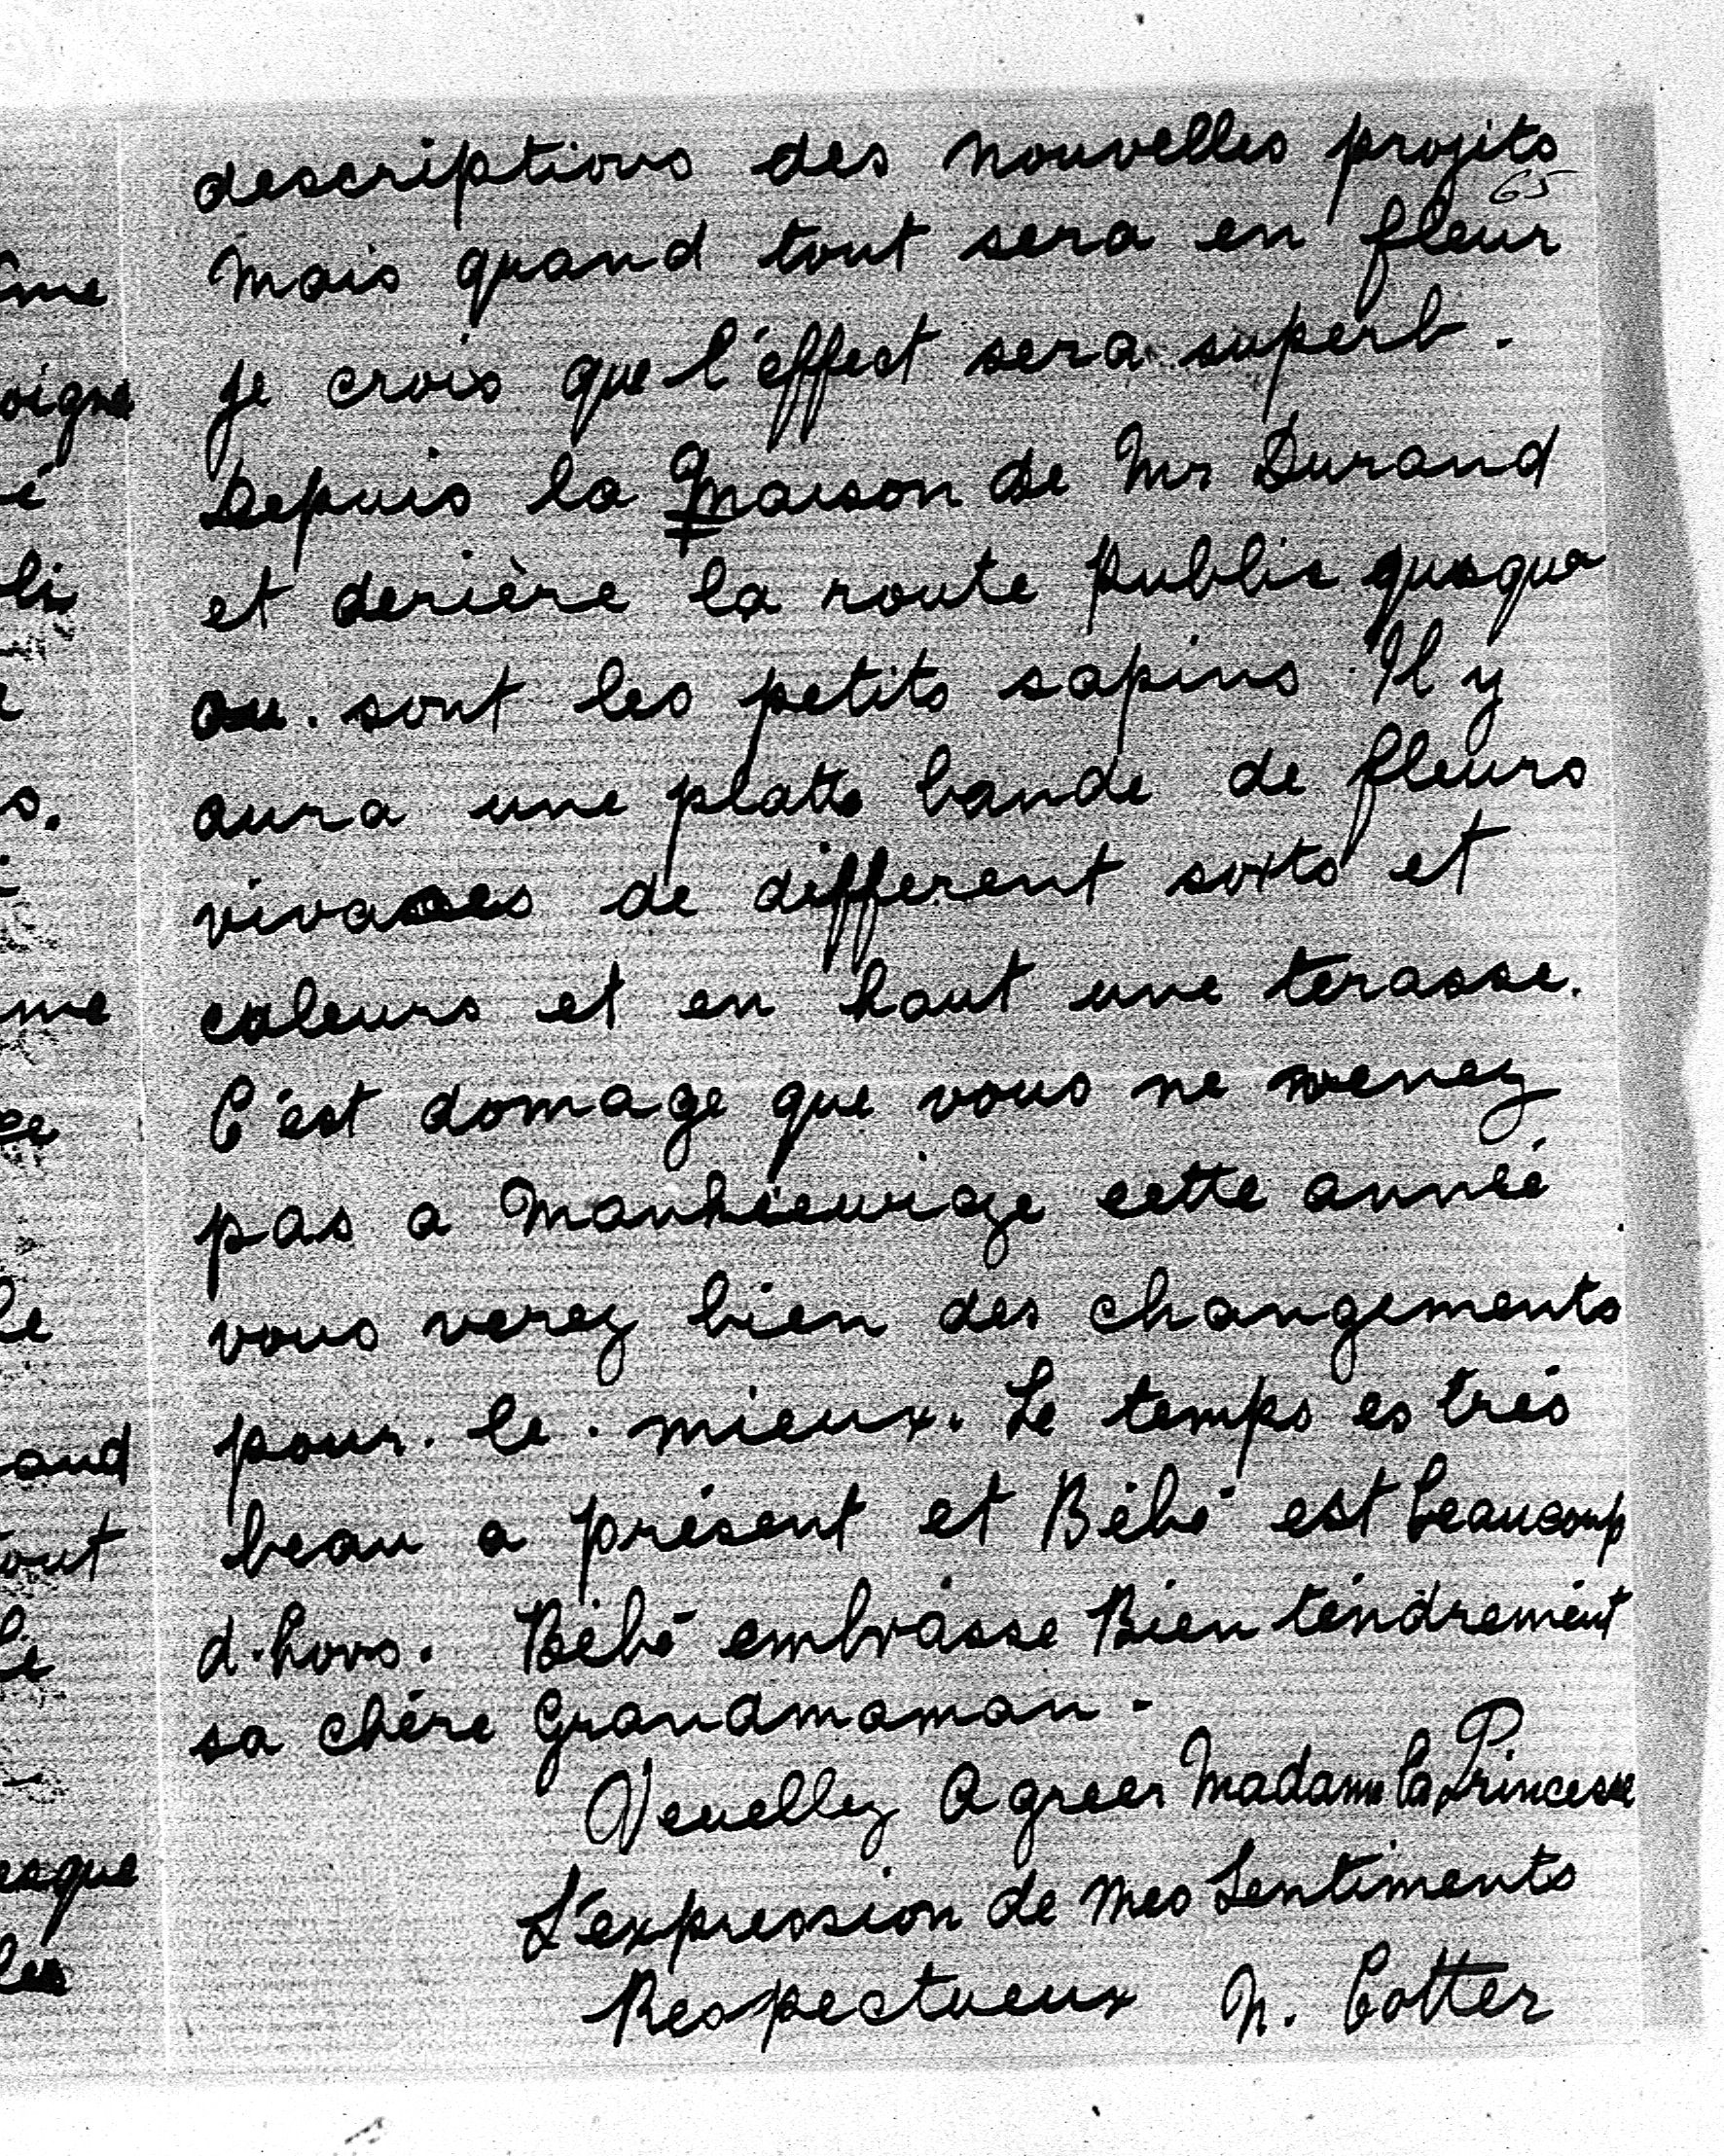 descriptions des nouvelles projits
65
Mais quand tout sera en fleur
je crois que l'éffect sera superb.
Depuis la maison de Mr Durand
et derière la route public qusqua
ou. sont les petits sapins. Il y
aura une platte bande de fleurs
vivaces de différent sorts et
coleurs et en haut une terasse.
C'est domage que vous ne venez
pas a Mankiewicze cette anneé
vous verez bien des changements
pour. le. mieux. Le temps es très
beau a présent et Bébé est beaucoup
d.hors. Bébé embrasse Bien tendrement
sa chère Grandmaman.
Veuellez Agreer Madame la Princesse
L'expression de mes Sentiments
Respectueux N. Cotter